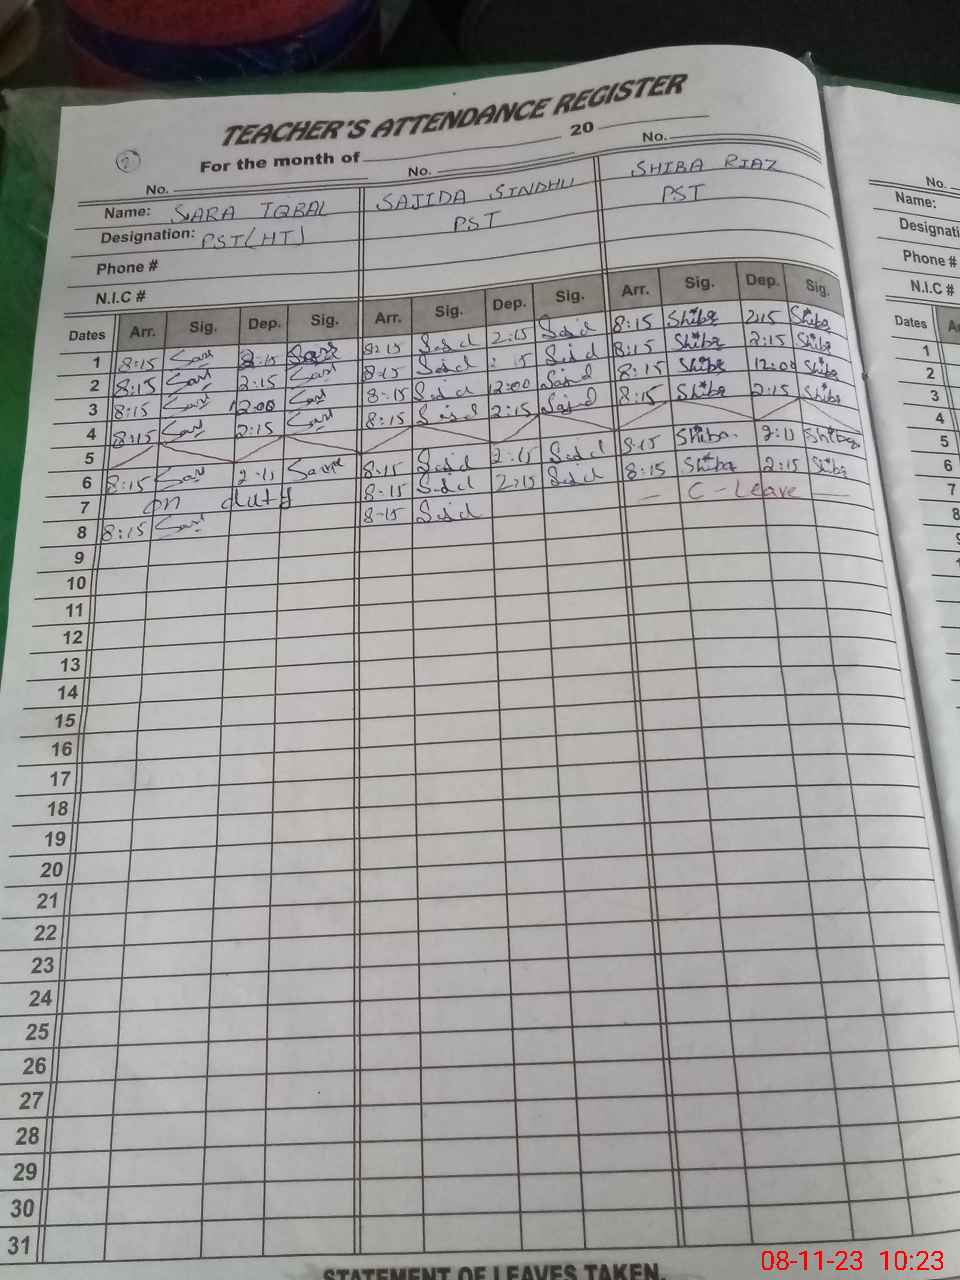 TEACHER'S ATTENDANCE REGISTER
2
For the month of 20
No. No. No.
Name: SARA IQBAL SAJIDA SINDHU SHIBA RIAZ
Designation: PST(HT) PST PST
Phone #
N.I.C #
Dates Arr. Sig. Dep. Sig. Arr. Sig. Dep. Sig. Arr. Sig. Dep. Sig.
1 8:15 2:15 8:15 2:15 8:15 Shiba 2:15 Shiba
2 8:15 2:15 8:15 : 15 8:15 Shiba 2:15 Shiba
3 8:15 12:00 8:15 12:00 8:15 Shiba 12:00 Shiba
4 8:15 2:15 8:15 2:15 8:15 Shiba 2:15 Shiba
5
6 8:15 8:15 2:15 8:15 Shiba. Shiba
7 on duty 8:15 2:15 8:15 Shiba 2:15 Shiba
8 8:15 8:15 — C-Leave —
9
10
11
12
13
14
15
16
17
18
19
20
21
22
23
24
25
26
27
28
29
30
31
STATEMENT OF LEAVES TAKEN.
No.
Name:
Designati
Phone #
N.I.C #
Dates
1
2
3
4
5
6
7
8
08-11-23 10:23